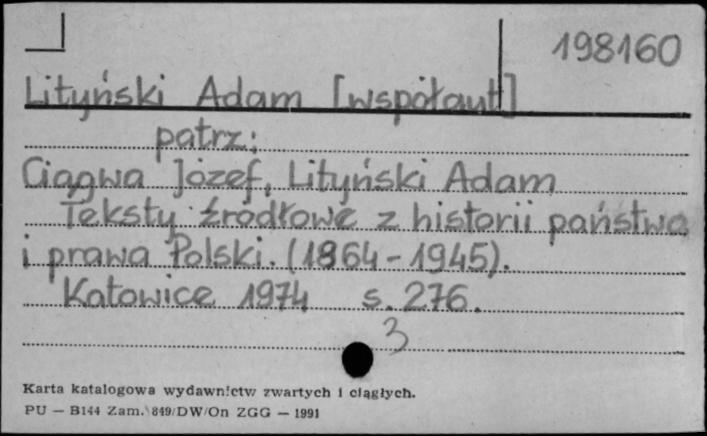 198160
Lityński Adam [współaut]
patrz:
Ciągwa Józef, Lityński Adam
Teksty źródłowe z historii państwa
i prawa Polski. (1864-1945).
Katowice 1974 s. 276.
3
Karta katalogowa wydawnictw zwartych i ciągłych.
PU — B144 Zam. 849/DW/On ZGG — 1991